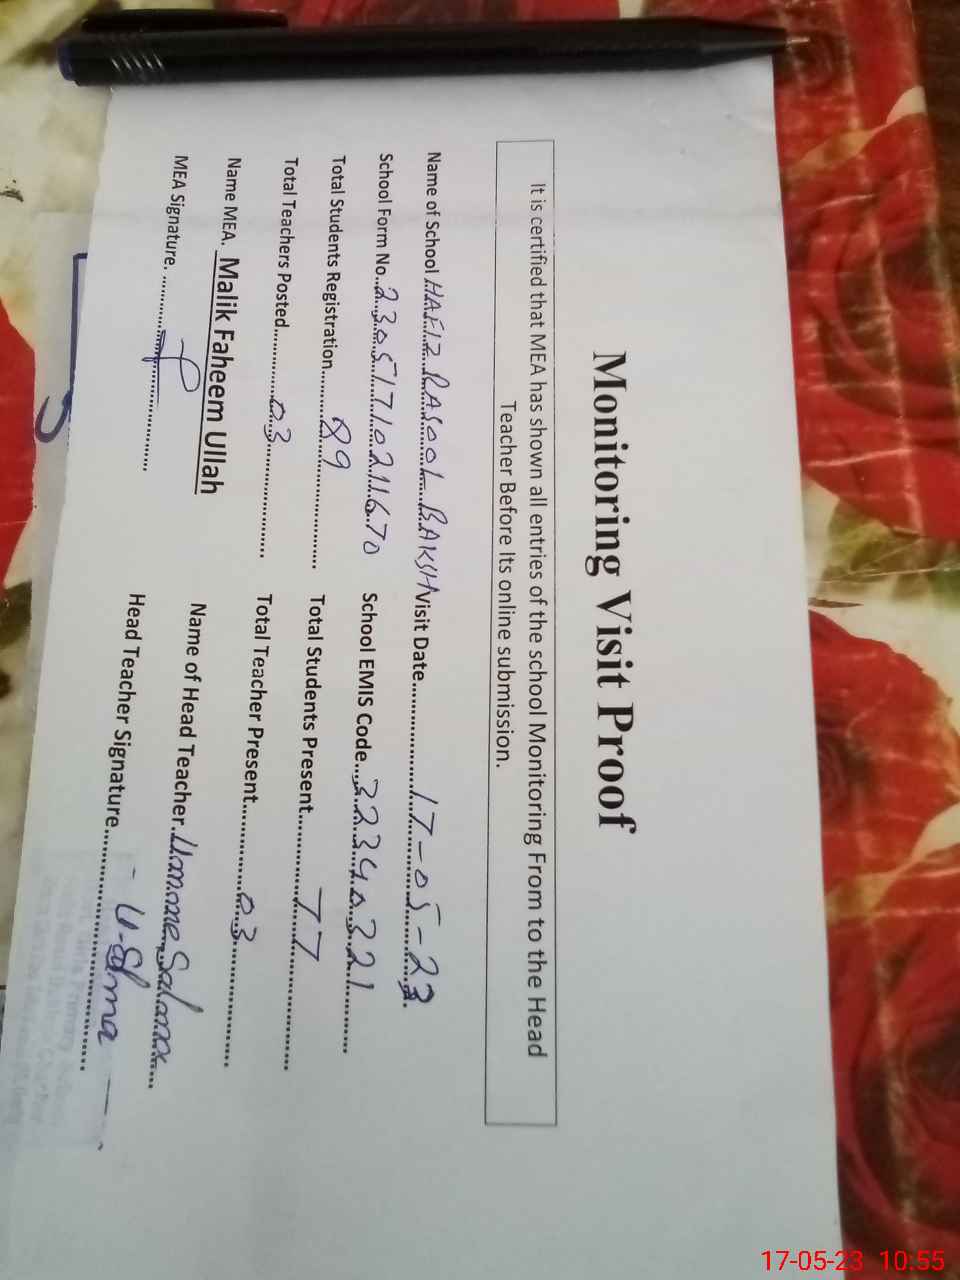 Monitoring Visit Proof
It is certified that MEA has shown all entries of the school Monitoring From to the Head
Teacher Before Its online submission.
Name of School HAFIZ RASOOL BAKSH Visit Date 17-05-23
School Form No. 23051710211670 School EMIS Code 32340321
Total Students Registration 89 Total Students Present 77
Total Teachers Posted 03 Total Teacher Present 03
Name MEA. Malik Faheem Ullah Name of Head Teacher Umme Salma
MEA Signature. Head Teacher Signature U-Salma
17-05-23 10:55